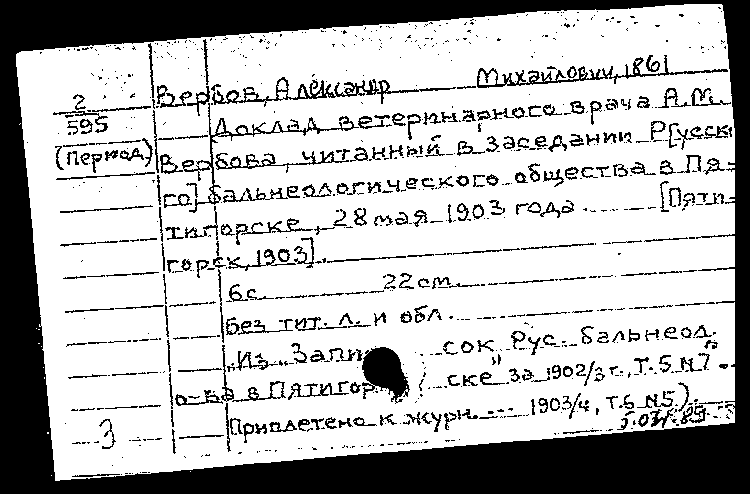 Вербов, Александр Михайлович, 1861
2
595
(Период)
Доклад ветеринарного врача А.М.
Вербова, читанный в заседании Р[усско
го] бальнеологического общества в Пя-
тигорске, 28 мая 1903 года. [Пяти-
горск, 1903].
6 с. 22 см.
Без тит. л. и обл.
"Из "Записок Рус. бальнеол.
о-ва в Пятигорске" за 1902/3 г., Т. 5 №7".
Приплетено к журн. --- 1903/4, Т. 5 №5).
3